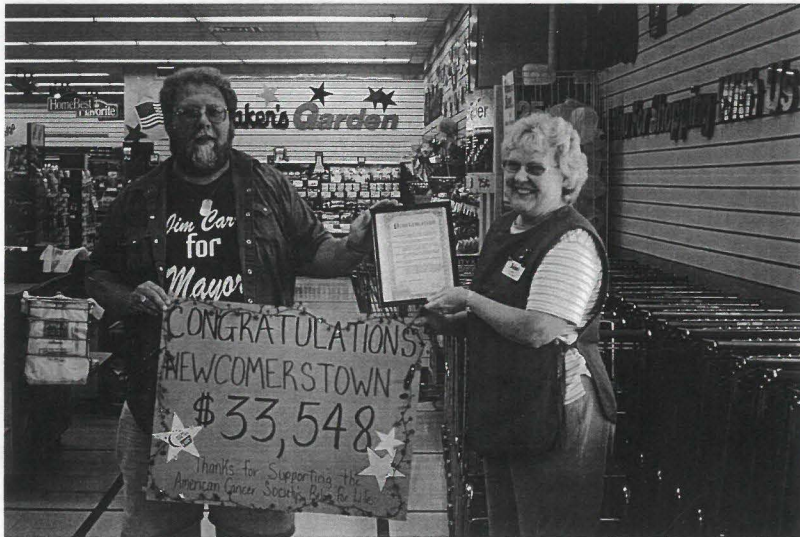 HomeBest
Favorite
aker's Garden
Shopping WITH US
Jim Car
for
Mayor
PROCLAMATION
CONGRATULATIONS
NEWCOMERSTOWN
$33,548
Thanks for Supporting the
American Cancer Society Relay for Life!